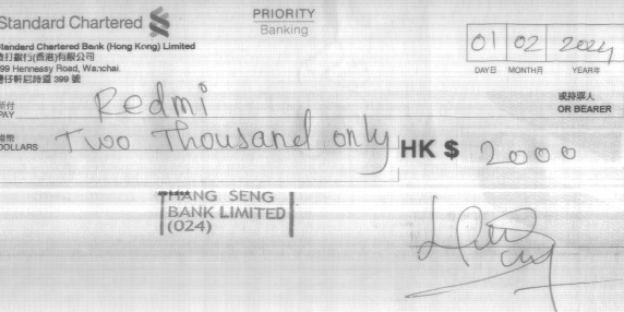 Standard Chartered
PRIORITY
Banking
Standard Chartered Bank (Hong Kong) Limited
渣打銀行(香港)有限公司
399 Hennessy Road, Wanchai.
灣仔軒尼詩道 399 號
01 02 2024
DAY日 MONTH月 YEAR年
祈付
PAY
Redmi
或持票人
OR BEARER
港幣
DOLLARS
Two Thousand only
HK $ 2000
HANG SENG
BANK LIMITED
(024)